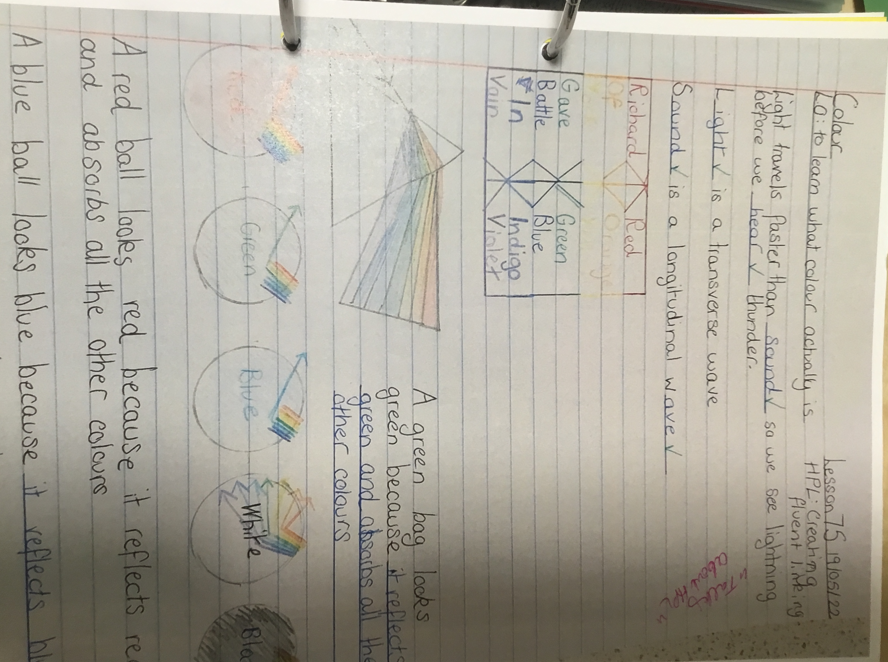 Colour
Lesson 75 19/05/22
LO: to learn what colour actually is
HPL: Creating
fluent linking
Light travels faster than sound so we see lightning
before we hear thunder.
Light is a transverse wave
Sound is a longitudinal wave
Richard Red
Of Orange
Gave Green
Battle Blue
In Indigo
Vain Violet
A green bag looks
green because it reflects
green and absorbs all the
other colours
Red
Green
Blue
White
A red ball looks red because it reflects
and absorbs all the other colours
A blue ball looks blue because it reflects